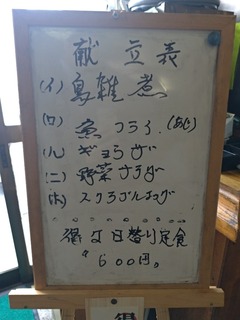 献立表
(イ) 鳥雑煮
(ロ) 魚フライ. (あじ)
(ハ) ギョウザ
(ニ) 野菜サラダ
(ホ) スクランブルエッグ
得々日替り定食
〝600円〟